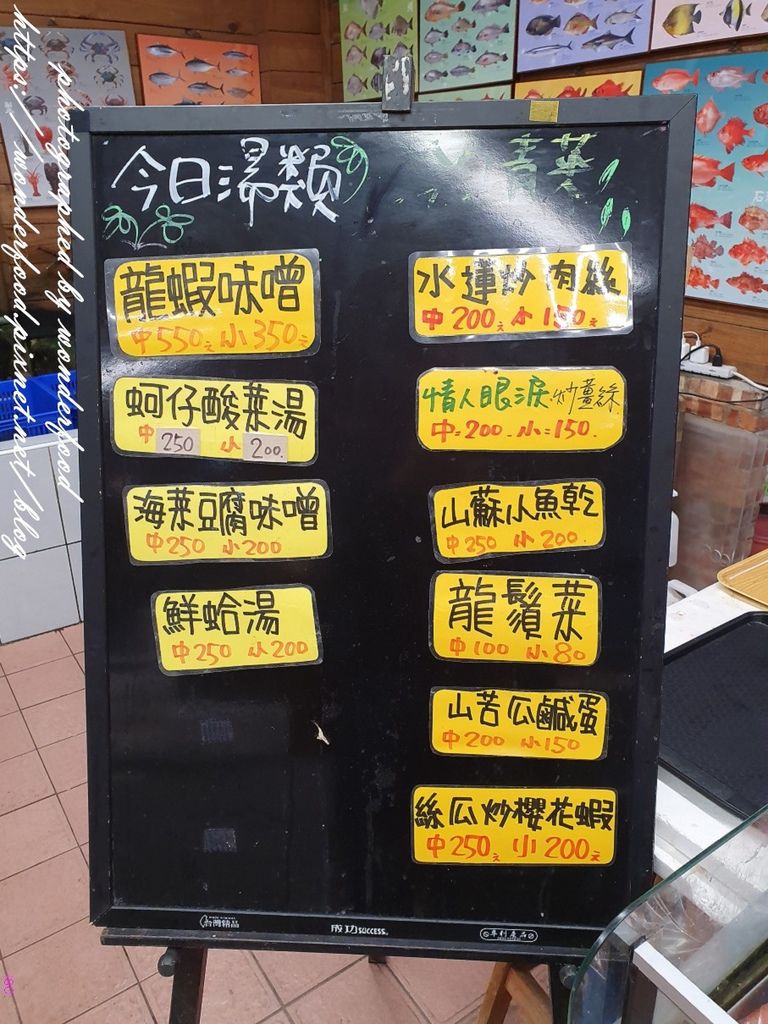 今日湯類
龍蝦味噌
中550元 小350元
蚵仔酸菜湯
中250 小200.
海菜豆腐味噌
中250 小200
鮮蛤湯
中250 小200
青菜
水蓮炒肉絲
中200元 小150元
情人眼淚炒薑絲
中=200. 小=150.
山蘇小魚乾
中250 小200
龍鬚菜
中100 小80
山苦瓜鹹蛋
中200 小150
絲瓜炒櫻花蝦
中250元 小200元
台灣精品
成功SUCCESS
專利產品
photographed by wonderfood
https://wonderfood.pixnet.net/blog